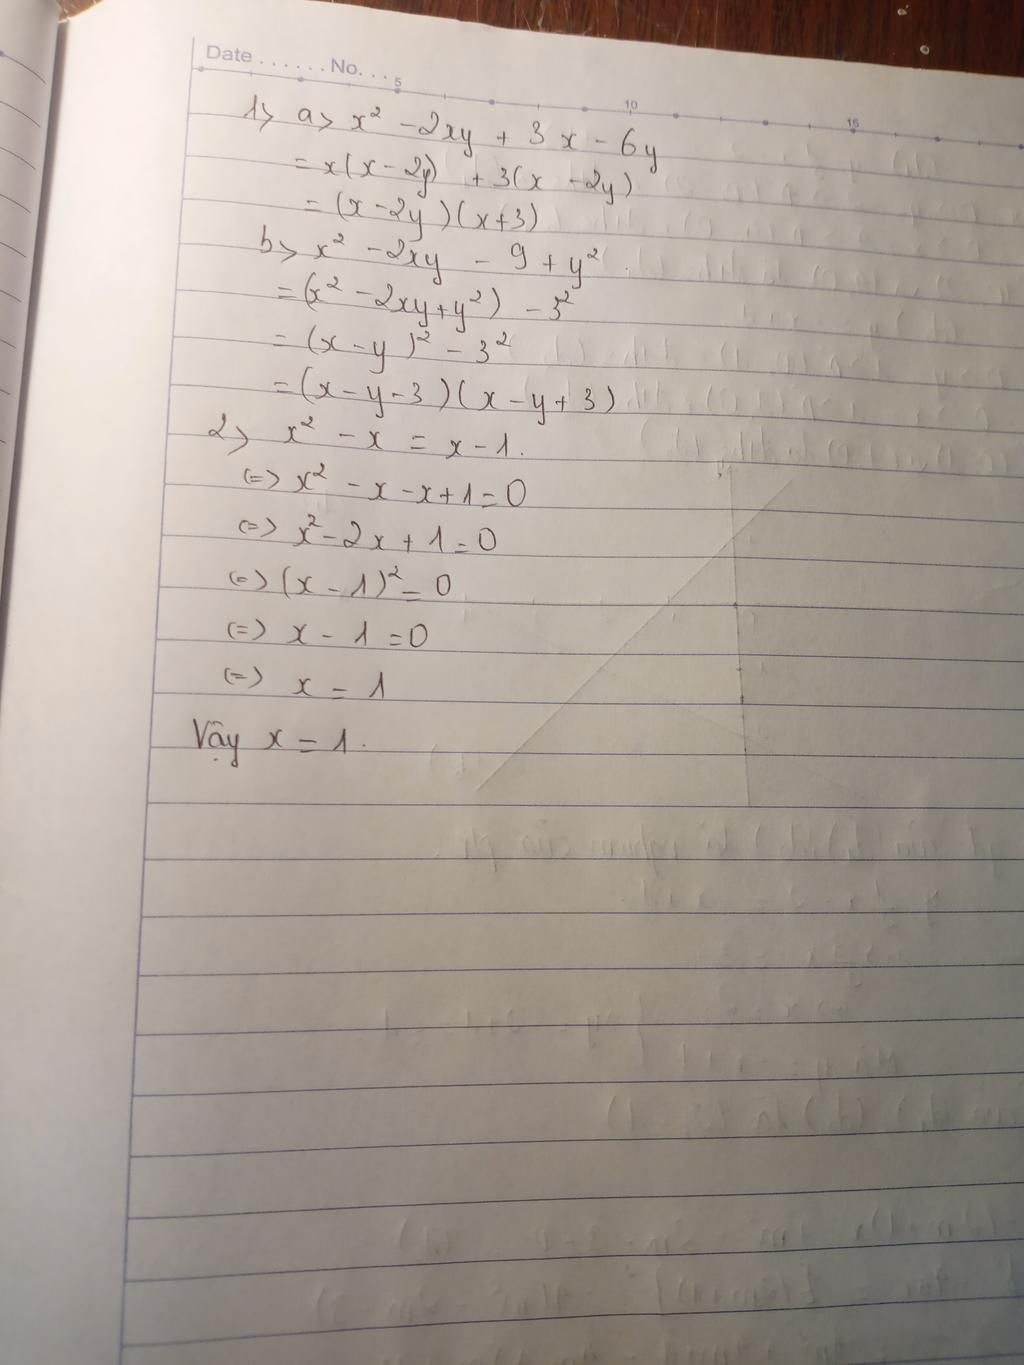 Date ...... No. ...
5 10 15
1> a> x² - 2xy + 3x - 6y
= x(x - 2y) + 3(x - 2y)
= (x - 2y)(x + 3)
b> x² - 2xy - 9 + y².
= (x² - 2xy + y²) - 3²
= (x - y)² - 3²
= (x - y - 3)(x - y + 3)
2> x² - x = x - 1.
(=) x² - x - x + 1 = 0
(=) x² - 2x + 1 = 0
(=) (x - 1)² = 0
(=) x - 1 = 0
(=) x = 1
Vậy x = 1.